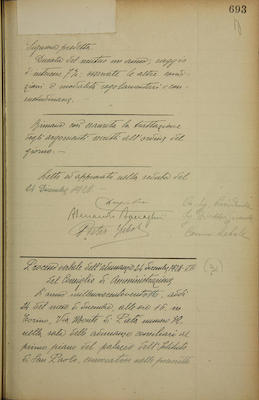 693
Signora predetta.
Durata del mutuo un anno; saggio
d'interesse 7%; osservate le altre condi-
zioni e modalità regolamentari e con-
suetudinarie.
Rimane così esaurita la trattazione
degli argomenti iscritti all'ordine del
giorno.
Letto ed approvato nella seduta del
24 Dicembre 1928.
Processo verbale dell'adunanza 24 dicembre 1928 VII
del Consiglio di Amministrazione
L'anno millenovecentoventotto, addì
24 del mese di dicembre, alle ore 16, in
Torino, Via Monte di Pietà numero 32,
nella sala delle adunanze consiliari al
primo piano del palazzo dell'Istituto
di San Paolo, convocatosi nelle prescritte